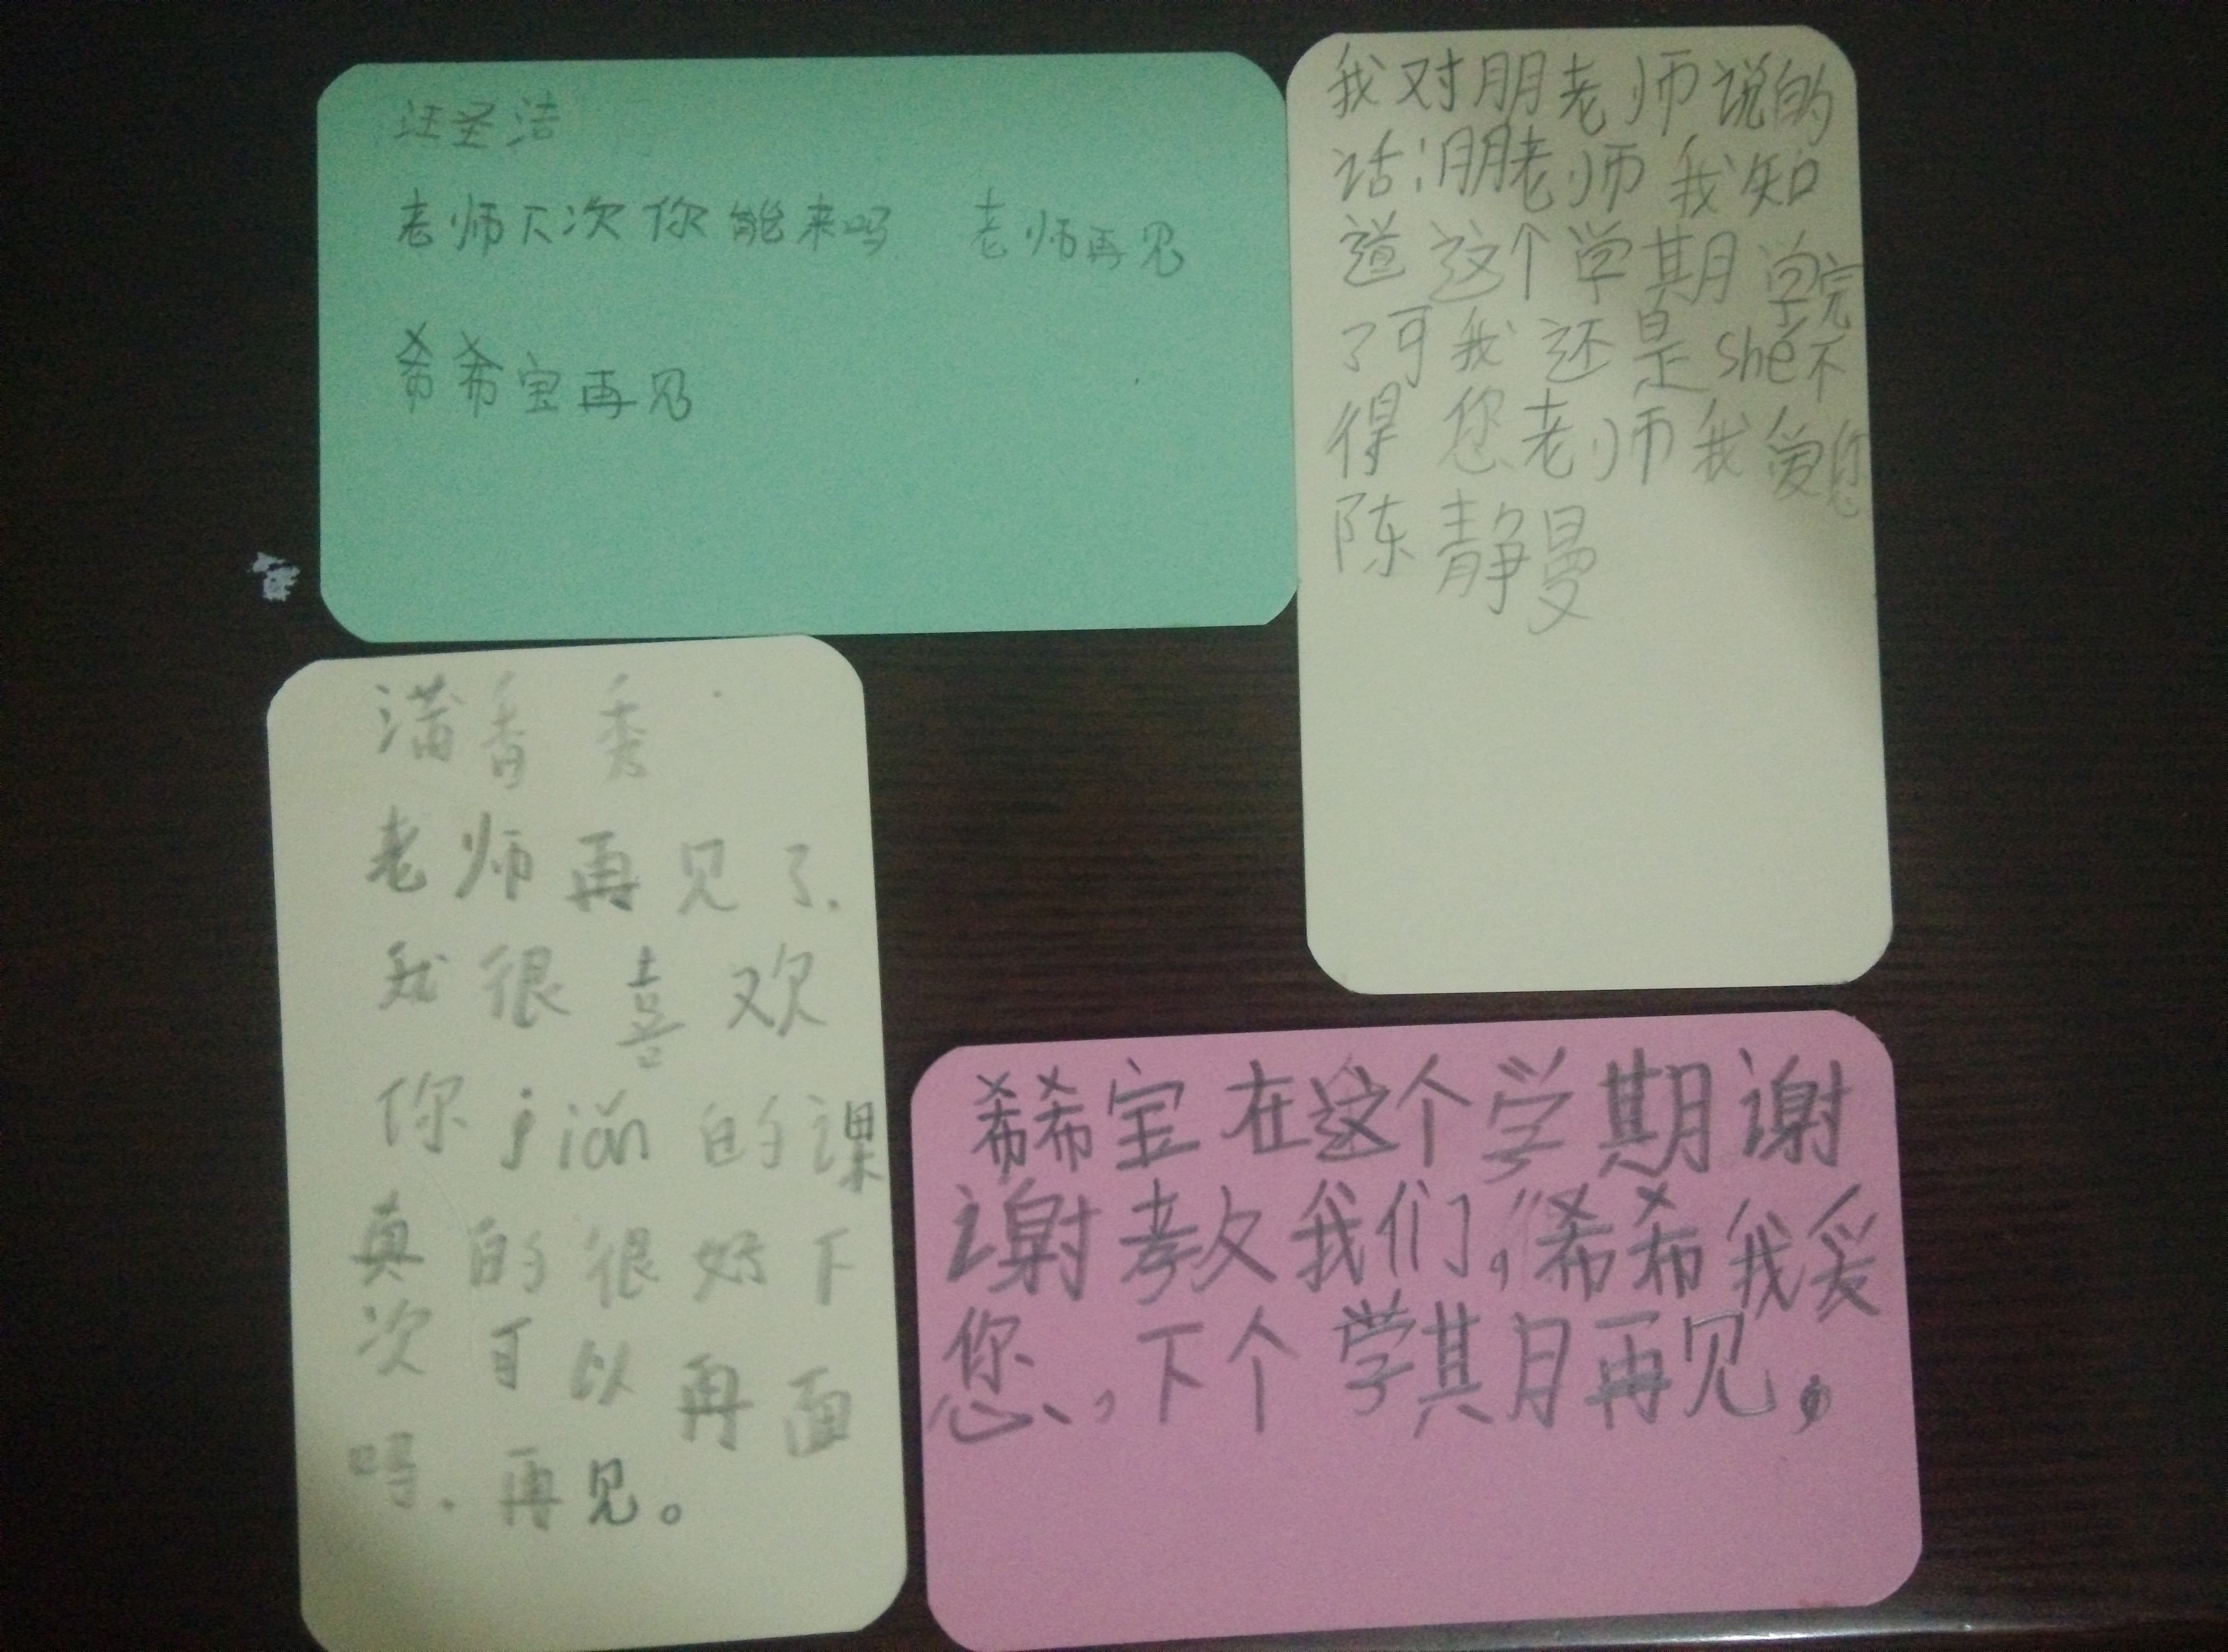 汪圣洁
老师下次你能来吗 老师再见
希希宝再见
我对朋老师说的
话:朋老师我知
道这个学期学完
了可我还是shé不
得您老师我爱您
陈静曼
满香秀
老师再见了.
我很喜欢
你jián的课
真的很好下
次可以再面
吗.再见。
希希宝在这个学期谢
谢教我们,“希希我爱
您,下个学期再见。